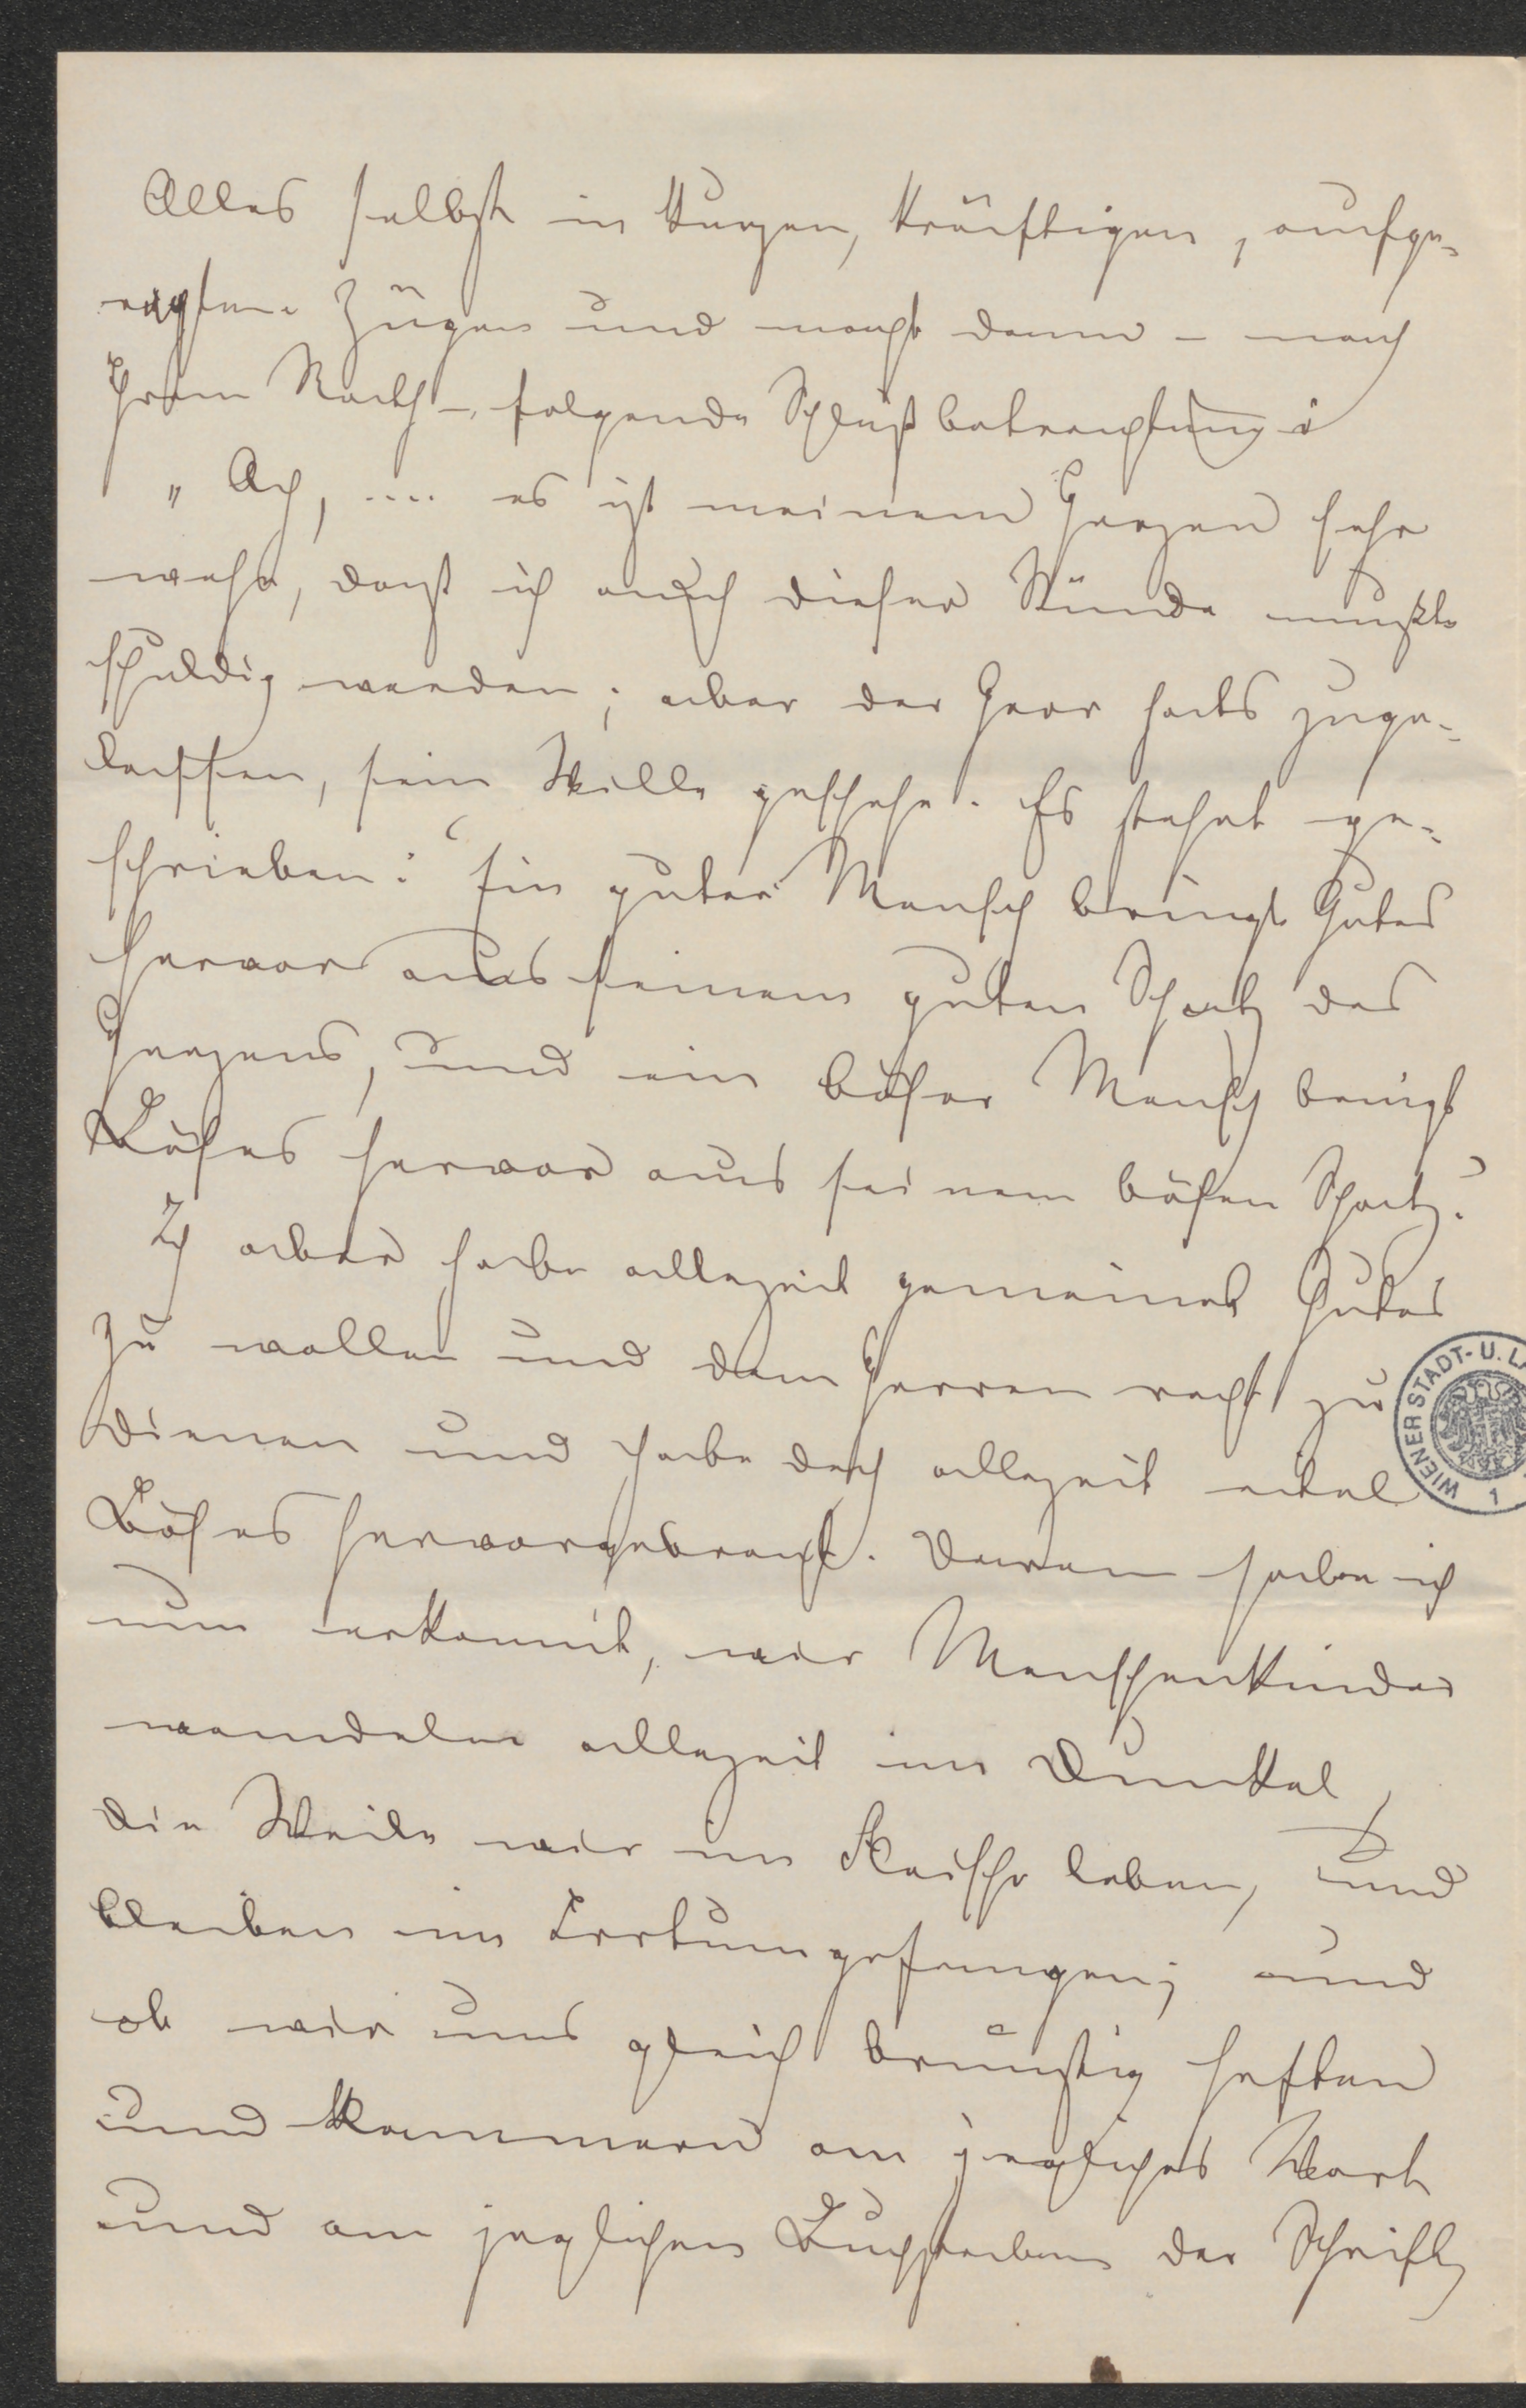 Alles selbst in kurzen, kräftigen, aufge-
regten Zügen und macht dann – nach
Ihrem Rath –, folgende Schlußbetrachtung:
„Ach, .... es ist meinem Herzen sehr
wehe, daß ich auch dieser Sünde mußte
schuldig werden; aber der Herr hats zuge-
lassen, sein Wille geschehe. Es stehet ge-
schrieben: „Ein guter Mensch bringt Gutes
hervor aus seinem guten Schatz des
Herzens, und ein böser Mensch bringt
Böses hervor aus seinem bösen Schatz.“
Ich aber habe allezeit gemeinet Gutes
zu wollen und dem Herren recht zu
dienen und habe doch allezeit eitel
Böses hervorgebracht. Daran habe ich
nun erkannt, wir Menschenkinder
wandeln allezeit im Dunkel,
die Weile wir im Fleische leben, und
bleiben im Irrtum gefangen; und
ob wir uns gleich brünstig heften
und klammern an jegliches Wort
und an jeglichen Buchstaben der Schrift,
WIENER STADT- U. LA
1